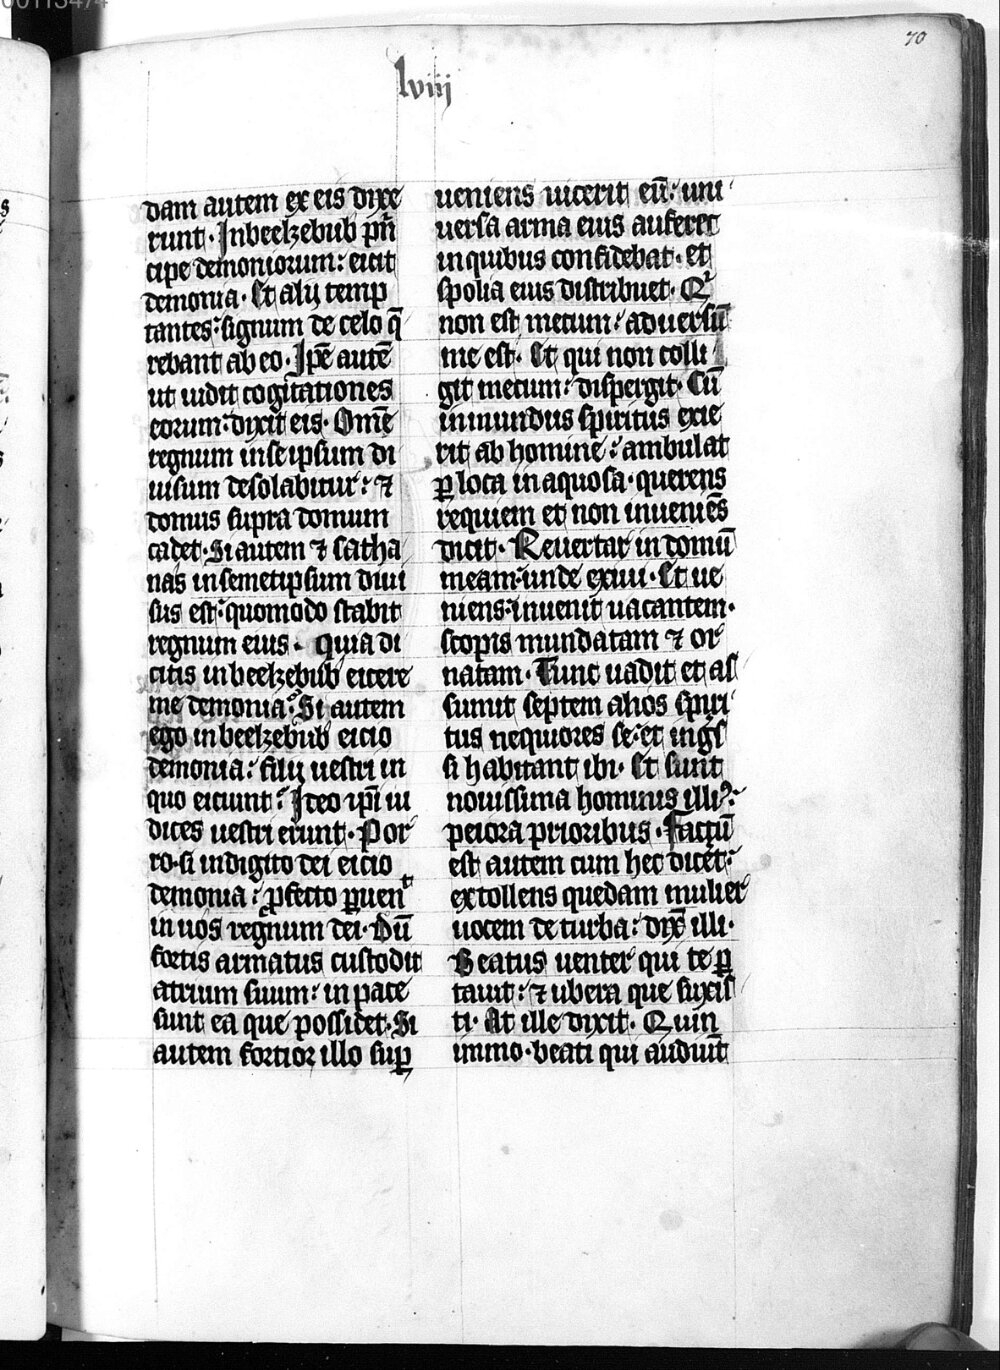 lviij
70
dam autem ex eis dixe
runt · In beelzebub pn̄
cipe demoniorum : eicit
demonia · Et alij temp
tantes : signum de celo q̄
rebant ab eo · Ipē autē
ut uidit cogitationes
eorum : dixit eis · Omē
regnum in se ipsum di
uisum desolabitur : ⁊
domus supra domum
cadet · Si autem ⁊ satha
nas in semetipsum diui
sus est : quomodo stabit
regnum eius · quia di
citis in beelzebub eicere
me demonia · Si autem
ego in beelzebub eicio
demonia : filij uestri in
quo eiciunt : Ideo ip̄i iu
dices uestri erunt · Por
ro · si in digito dei eicio
demonia : ꝓfecto ꝑuenᵗ
in uos regnum dei · Dū
fortis armatus custodit
atrium suum : in pace
sunt ea que possidet · Si
autem fortior illo suꝑ
ueniens uicerit eū : uni
uersa arma eius auferet
in quibus confidebat · et
spolia eius distribuet · Qⁱ
non est mecum : aduersū
me est · Et qui non colli
git mecum : dispergit · Cū
inmundus spiritus exie
rit ab homine : ambulat
ꝑ loca inaquosa · querens
requiem et non inueniēs
dicit · Reuertar in domū
meam : unde exiui · Et ue
niens : inuenit uacantem ·
scopis mundatam ⁊ or
natam · Tunc uadit et as
sumit septem alios spiri
tus nequiores se : et ings̄
si habitant ibi · Et sunt
nouissima hominis illiꝰ :
peiora prioribus · Factū
est autem cum hec dicet̄ :
extollens quedam mulier
uocem de turba : dix̄ illi ·
Beatus uenter qui te ꝑ
tauit : ⁊ ubera que suxis
ti · At ille dixit · Quin
immo · beati qui audiūt